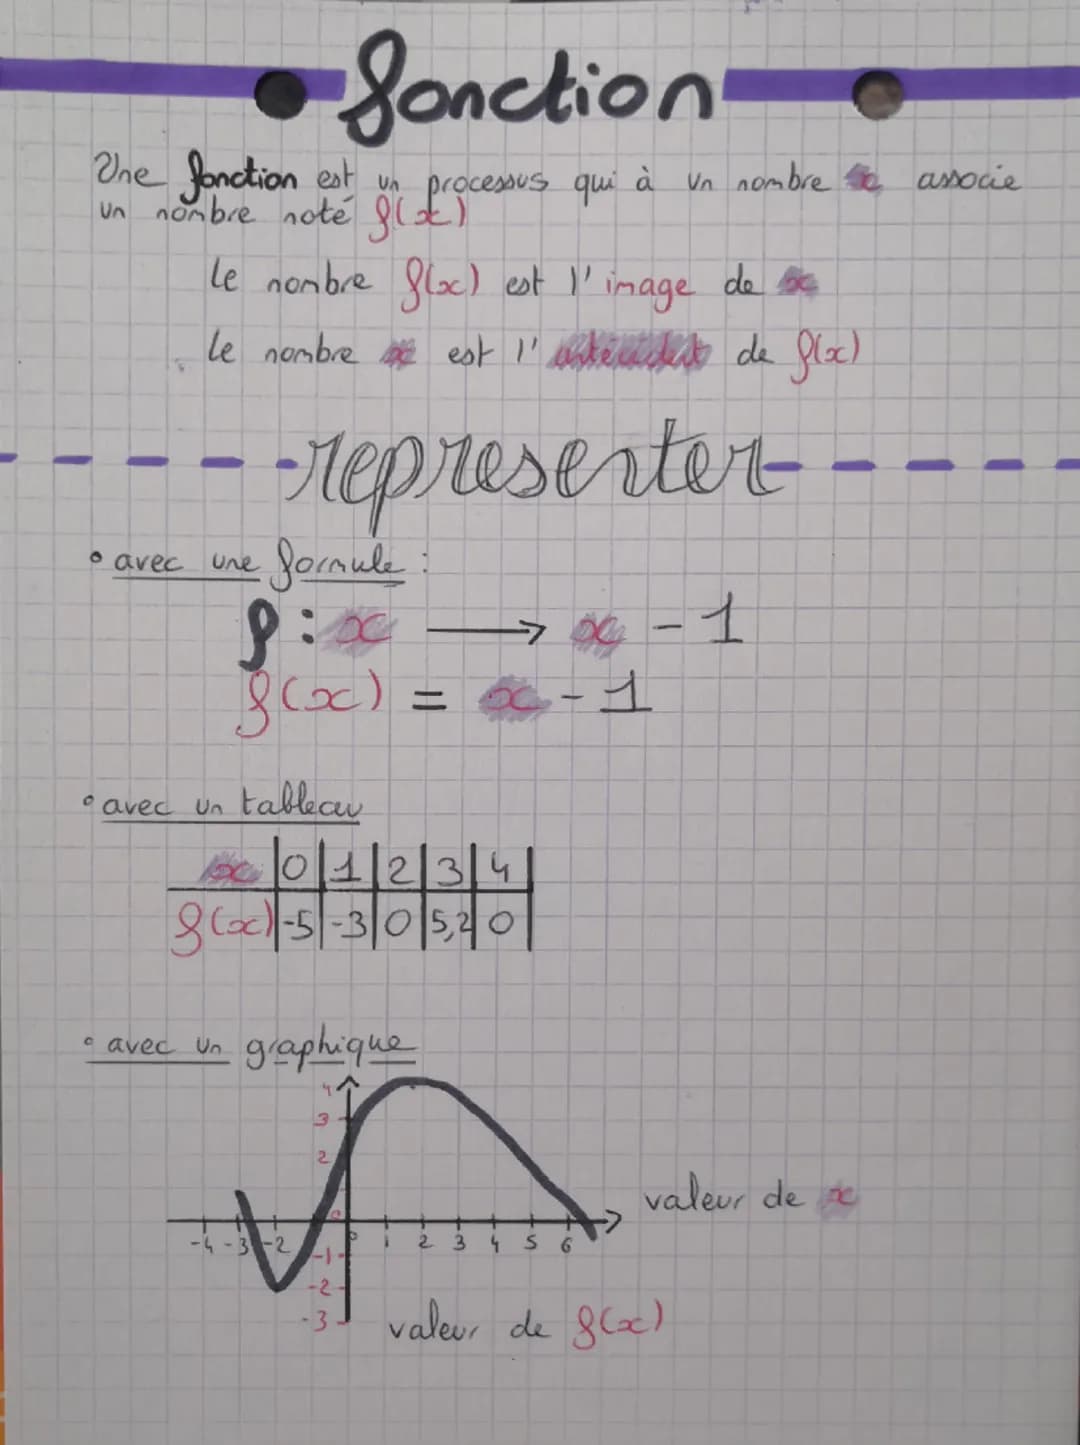 fonction
Une fonction est un processus qui à un nombre x associe
un nombre noté f(x)
le nombre f(x) est l'image de x
le nombre x est l'antécédent de f(x)
representer
• avec une formule :
f : x ⟶ x - 1
f(x) = x - 1
• avec un tableau
x | 0 | 1 | 2 | 3 | 4 |
f(x) | -5 | -3 | 0 | 5,2 | 0 |
• avec un graphique
4
3
2
0
-4 -3 -2 0 1 2 3 4 5 6
valeur de x
-1
-2
-3
valeur de f(x)